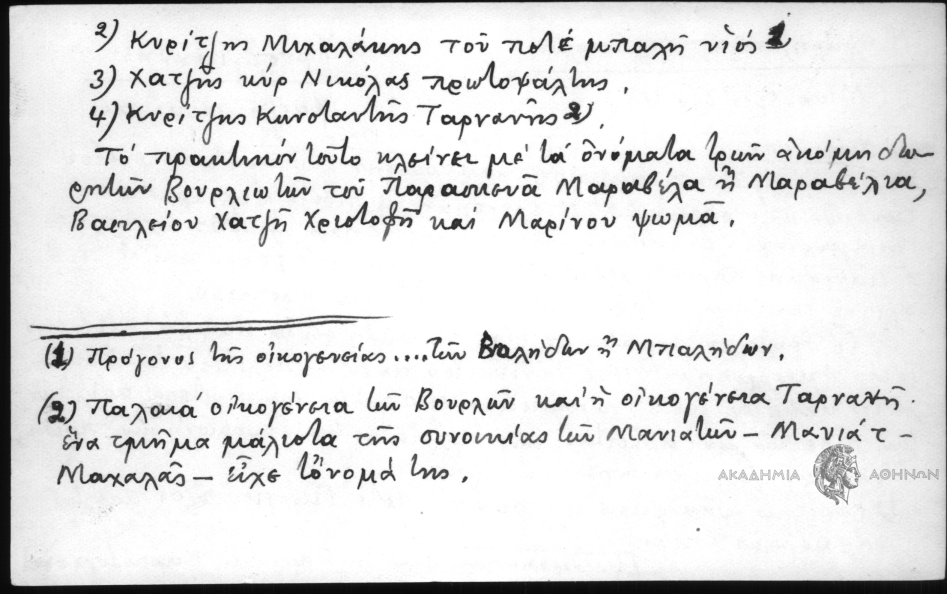 2) Κυρίτζης Μιχαλάκης τοῦ ποτέ μπαλῆ υἱός 1
3) Χατζῆς κύρ Νικόλας πρωτοψάλτης.
4) Κυρίτζης Κωνσταντῆς Ταρνανῆς 2).
Τό πρακτικόν τοῦτο κλείνει μέ τά ὀνόματα τριῶν ἀκόμη δω-
ρητῶν Βουρλιωτῶν τοῦ Παρασκευᾶ Μαραβέλα ἤ Μαραβέλια,
Βασιλείου Χατζῆ Χριστοφῆ καί Μαρίνου ψωμᾶ.
(1) Πρόγονος τῆς οἰκογενείας....τῶν Βαλήδων ἤ Μπαλήδων.
(2) Παλαιά οἰκογένεια τῶν Βουρλῶν καί ἡ οἰκογένεια Ταρνανῆ.
ἕνα τμῆμα μάλιστα τῆς συνοικίας τῶν Μανιατῶν – Μανιάτ –
Μαχαλᾶς – εἶχε τὄνομά της.
ΑΚΑΔΗΜΙΑ ΑΘΗΝΩΝ